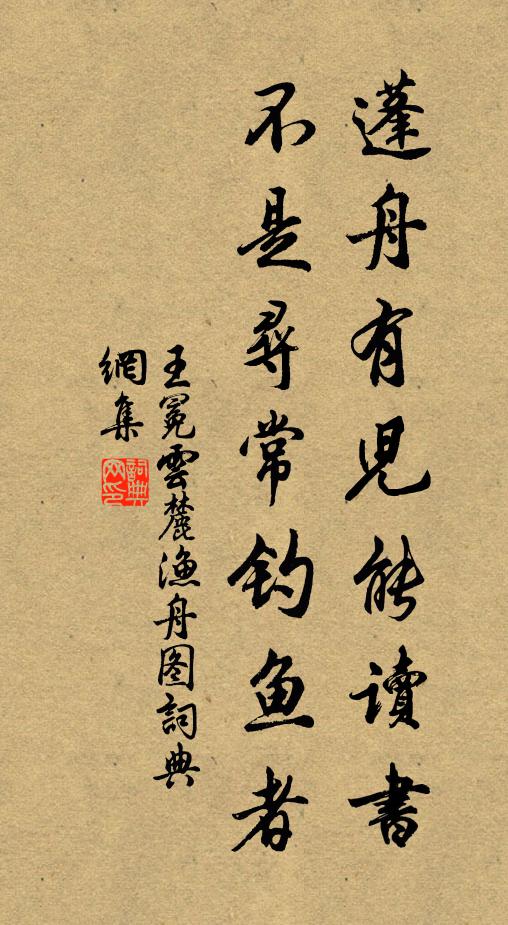 蓬舟有兒能讀書
不是尋常釣魚者
王冕雲麓渔舟图詞典
網集
詞典網印